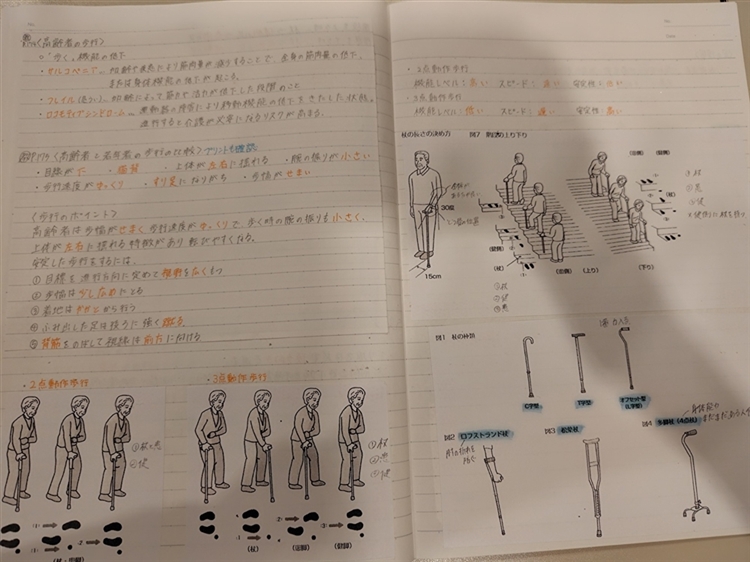 〈高齢者の歩行〉
○ "歩く"機能の低下
・サルコペニア― 加齢や疾患により筋肉量が減少することで、全身の筋肉量の低下、
または身体機能の低下が起こる。
・フレイル
加齢によって筋力や活力が低下した段階のこと
・ロコモティブシンドローム― 運動器の障害により移動機能の低下をきたした状態。
進行すると介護が必要になるリスクが高まる。
〈高齢者と若年者の歩行の比較〉プリントも確認
・目線が下 ・猫背 ・上体が左右に揺れる ・腕の振りが小さい
・歩行速度がゆっくり ・すり足になりがち ・歩幅がせまい
〈歩行のポイント〉
高齢者は歩幅がせまく歩行速度がゆっくりで、歩く時の腕の振りも小さく、
上体が左右に揺れる特徴があり転びやすくなる。
安定した歩行をするには、
① 目線を進行方向に定めて視野を広くもつ
② 歩幅は少し大きめにとる
③ 着地はかかとから行う
④ ふみ出した足は後ろに強く蹴る
⑤ 背筋をのばして視線は前方に向ける
・2点動作歩行
①杖と患
②健
(杖・患脚)
・3点動作歩行
①杖
②患
③健
(杖)
(患脚)
(健脚)
・2点動作歩行
機能レベル：高い スピード：速い 安定性：低い
・3点動作歩行
機能レベル：低い スピード：遅い 安定性：高い
杖の長さの決め方
30度
15cm
図7 階段の上り下り
(杖)
(健側)
(患側)
(上り)
①杖
②健
③患
(患側)
(健側)
(杖)
(下り)
①杖
②患
③健
図1 杖の種類
C字型
T字型
オフセット型
(L字型)
図2 ロフストランド杖
図3 松葉杖
図4 多脚杖（4点杖）